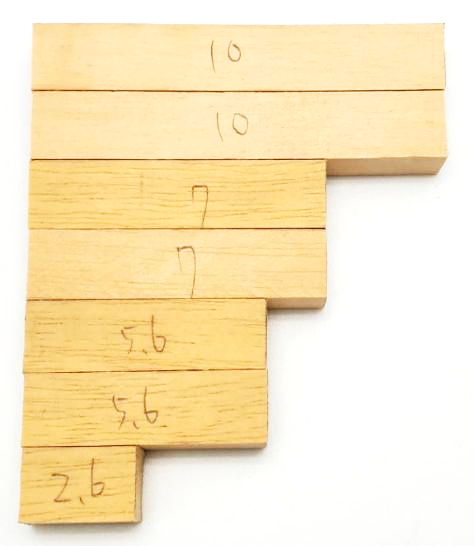 10
10
7
7
5.6
5.6
2.6